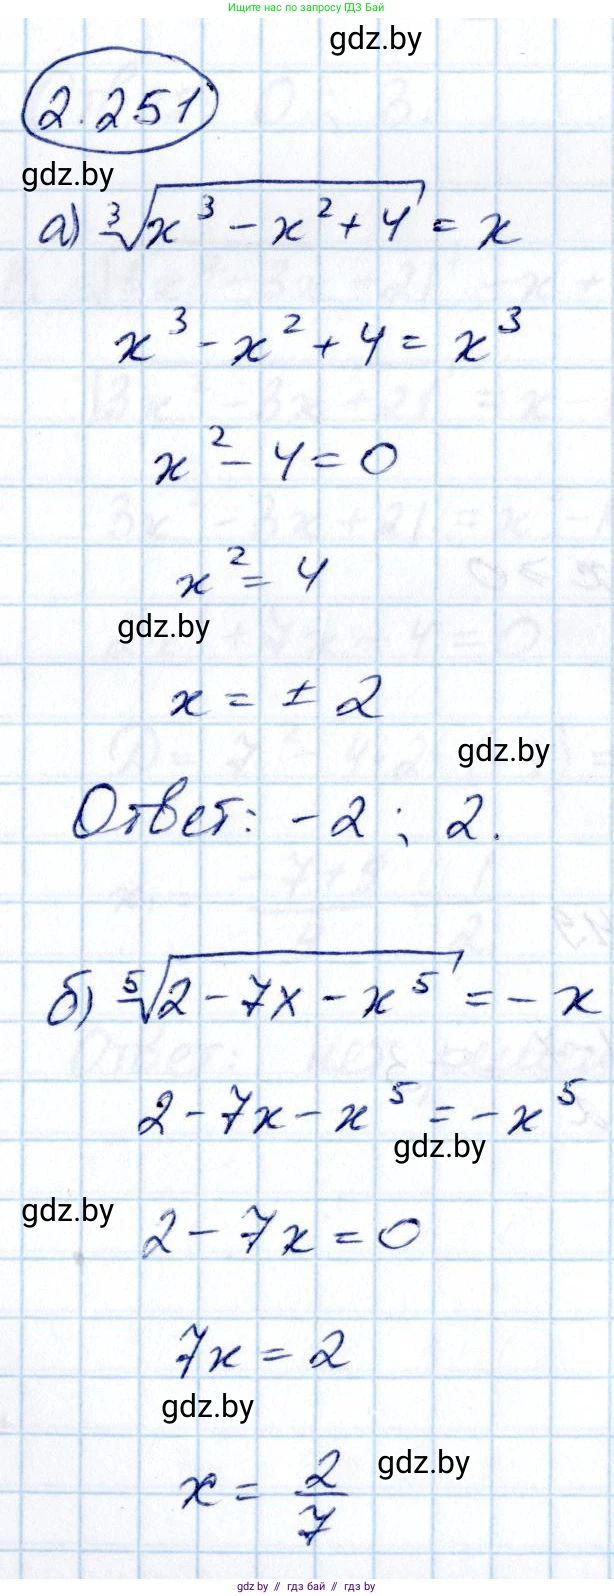 Ищите нас по запросу ГДЗ Бай
gdz.by
2.251
gdz.by
а) ∛(x³ - x² + 4) = x
x³ - x² + 4 = x³
x² - 4 = 0
x² = 4
gdz.by
x = ± 2
gdz.by
Ответ: -2 ; 2.
б) ⁵√(2 - 7x - x⁵) = - x
2 - 7x - x⁵ = - x⁵
gdz.by
gdz.by
2 - 7x = 0
7x = 2
gdz.by
x = 2/7
gdz.by
gdz.by // гдз бай // gdz.by